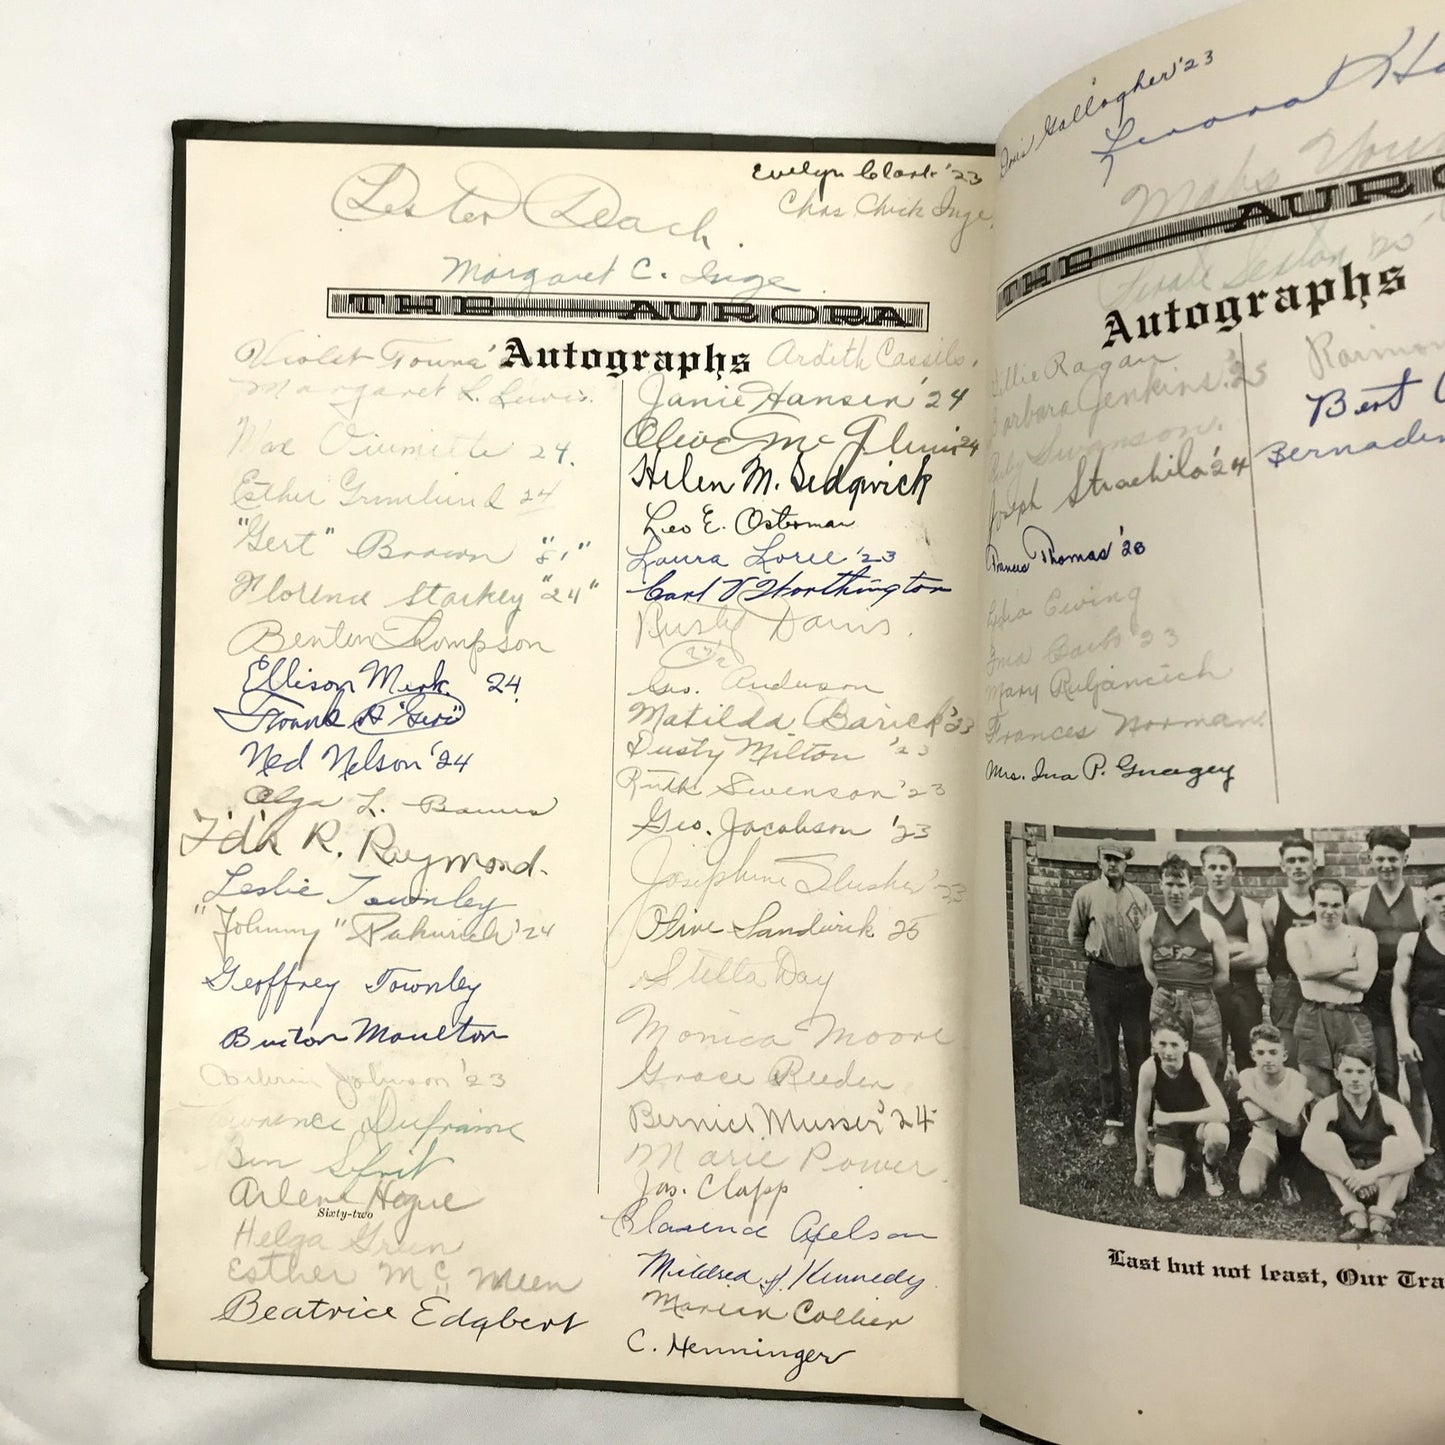 Evelyn Clark '23
Lester Deach.
Chas. Chick Inge
Margaret C. Inge
THE AURORA
Autographs
Violet Young
Margaret L. Lewis.
24.
Esther Grunlund 24
"Gert" Brown "81"
Florence Starkey "24"
Benton Thompson
Ellison Merk 24
Frank A "Gere"
Ned Nelson '24
Olga L.
Ida R. Raymond.
Leslie Townley
"Johnny" '24
Geoffrey Townley
Burton Moulton
Johnson '23
Lawrence Dufraine
Ben
Arlene Hogue
Sixty-two
Helga Green
Esther McMeen
Beatrice Edgbert
Ardith Cassils.
Janie Hansen '24
Olive Mc 24
Helen M. Sedgwick
Leo E. Osterman
Laura Loree '23
Carl V Worthington
Rusty Davis.
Geo. Anderson
Matilda Barick '23
Dusty Milton '23
Ruth Swenson '23
Geo. Jacobson '23
Josephine Slusher '23
Olive Sandwick 25
Stella Day
Monica Moore
Grace Reeder
Bernice Musser '24
Marie Power
Jas. Clapp
Clarence Axelson
Mildred J. Kennedy.
Marian Collier
C. Henninger
Doris Gallagher '23
Lenora
THE AURO
Sexton '25
Autographs
Billie Ragan
Barbara Jenkins. '25
Ruby Swanson.
Joseph Strachila '24
Francis Thomas '26
Ewing
Ina '23
Mary
Frances Norman
Mrs. Ina P. Gnagey
Bert
Last but not least, Our Tra